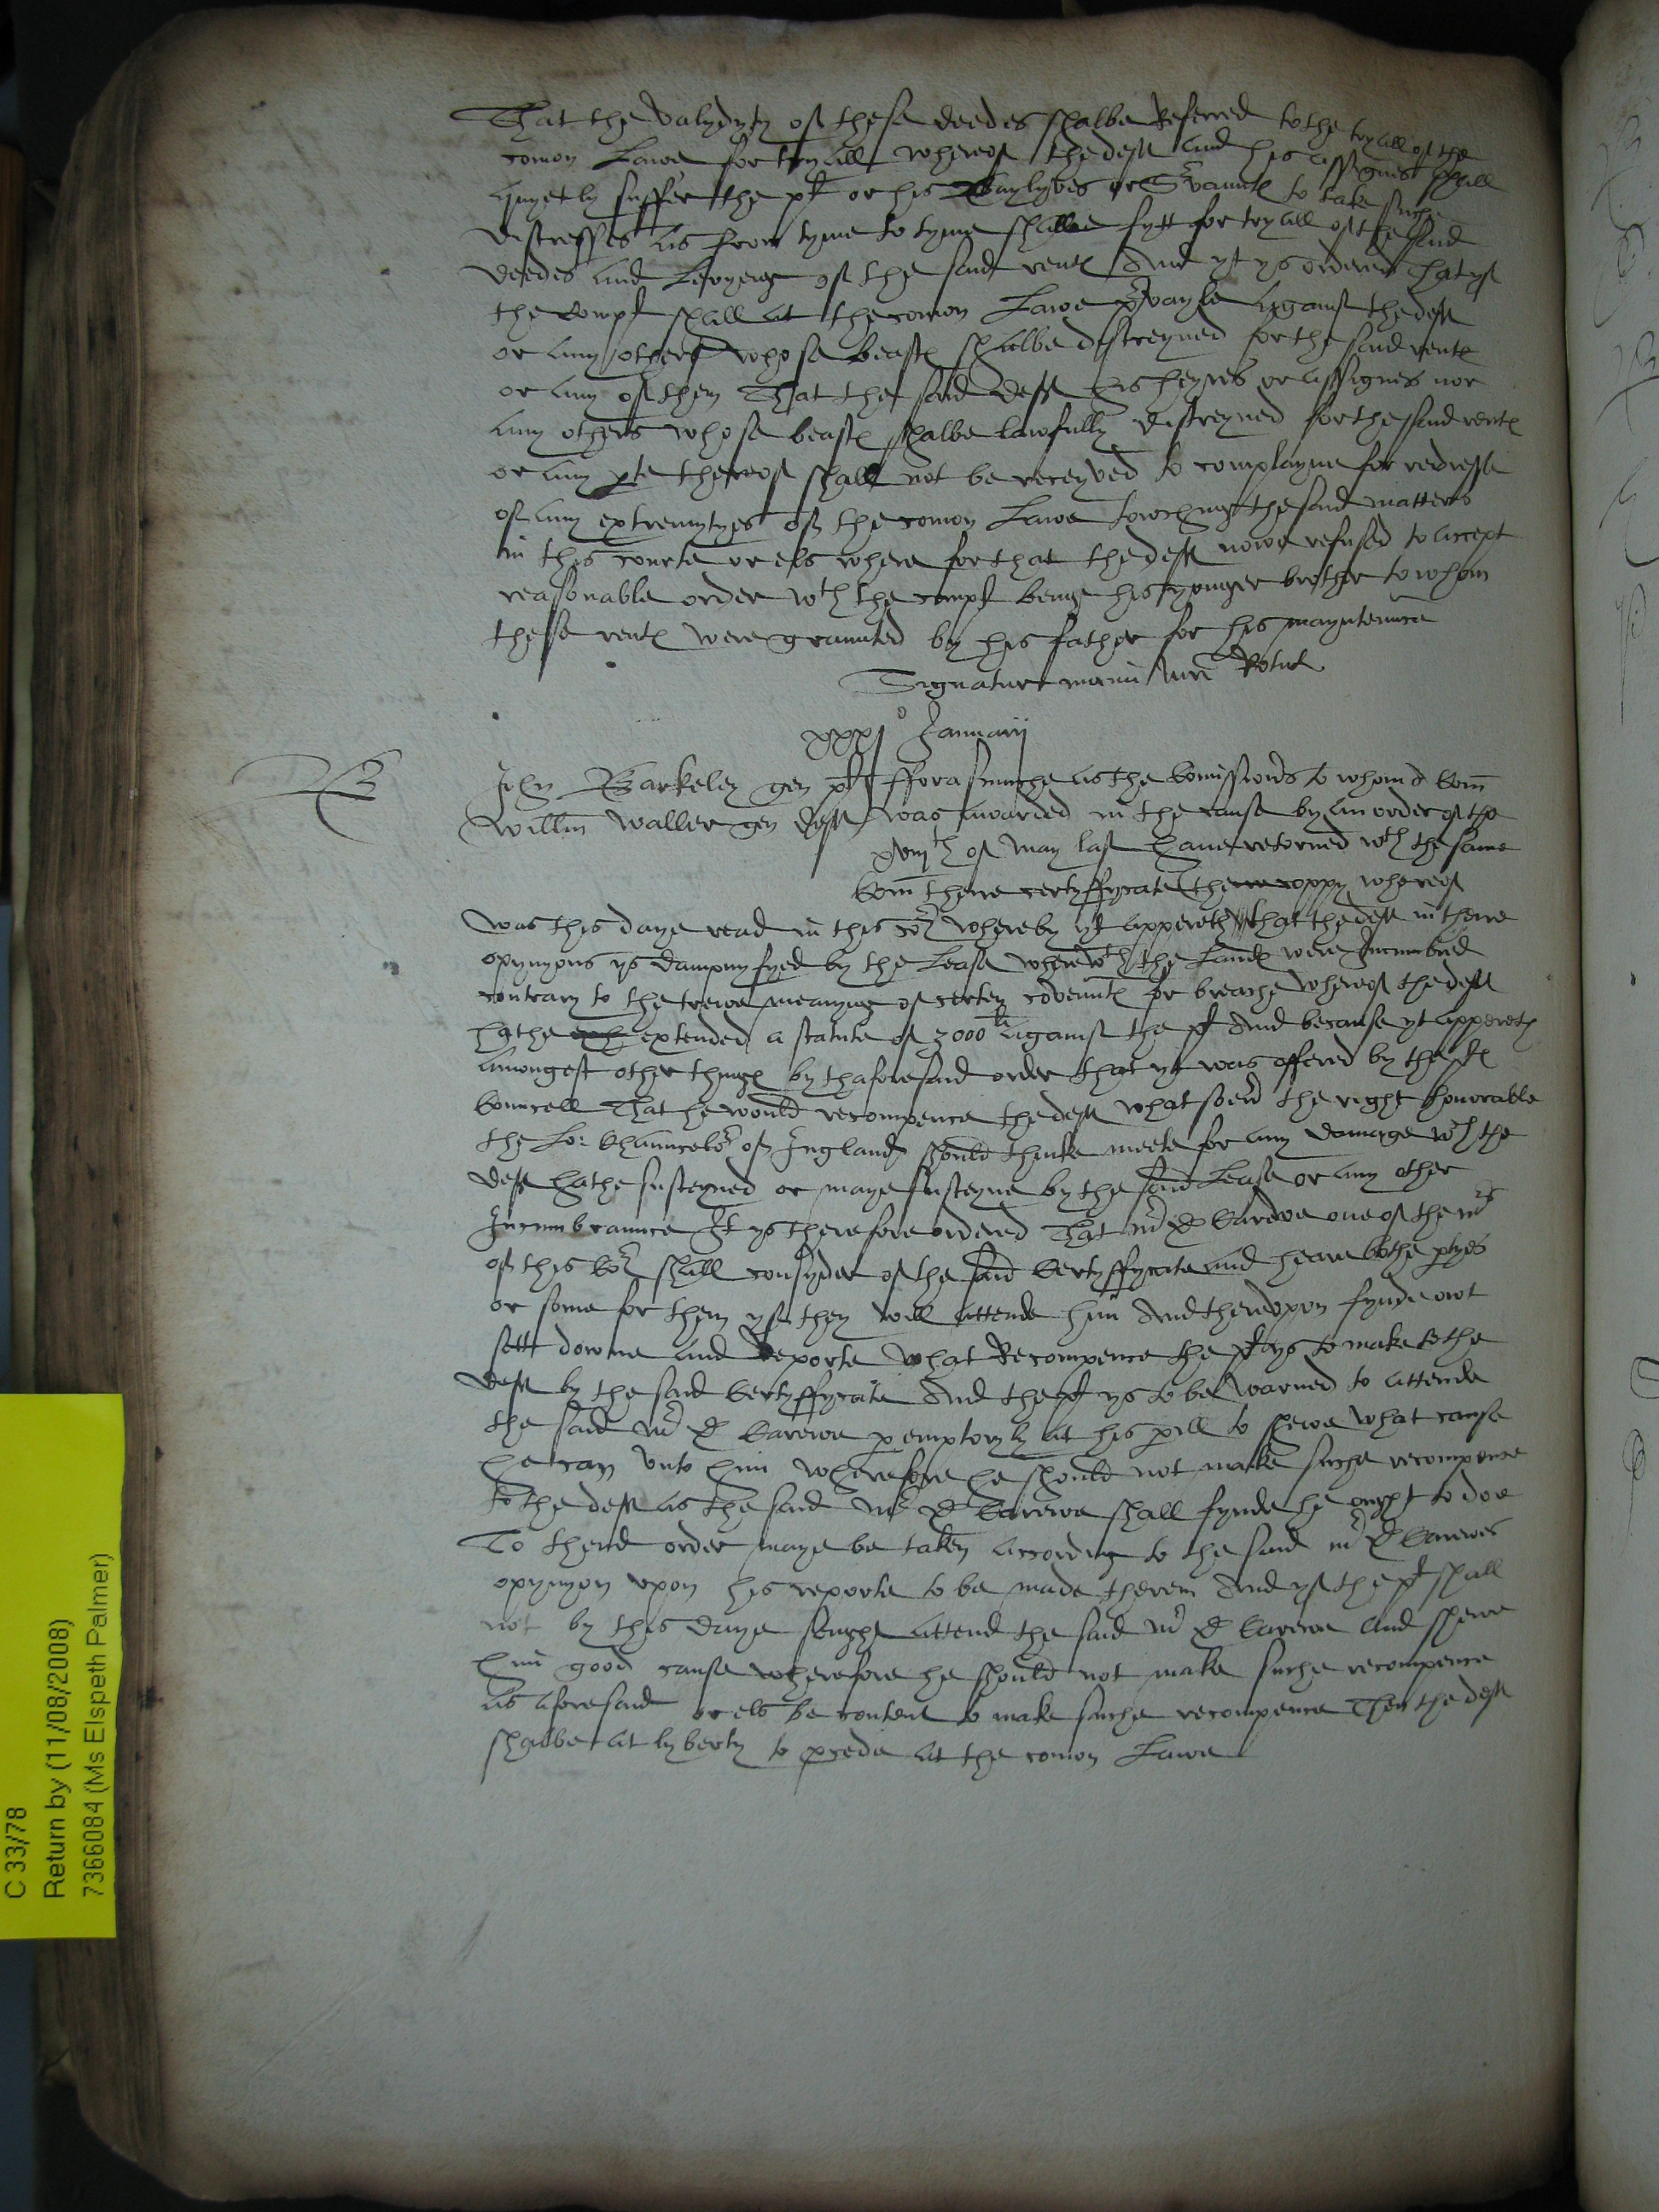 That the valydyty of these deedes shalbe Referred to the tryall of the
comon Lawe for tryall whereof the deft and his assignes shall
quyetly suffer the pl or his Baylyves or Servauntes to take suche
distresses as from tyme to tyme shalbe fytt for tryall of the said
deedes and Levyeng of the said rentes And yt ys ordered that yf
the compl shall at the comon Lawe prvayle against the deft
or any others whose beastes shalbe distreyned for the said rentes
or any of them That the said deft his heyres or assignes nor
any others whose beastes shalbe lawfully distreyned for the said rentes
or any pte thereof shall not be receyved to complayne for redresse
of any extremytyes of the comon Lawe towching the said matters
in this courte or els where for that the deft nowe refused to accept
reasonable order wth the compl being his yonger brother to whom
these rentes were graunted by his father for his mayntenance
Signatur manu
xxxj o Januarij
John Barkeley gen pl fforasmuche as the Comissioners to whom a Com
Willm Waller gen deft was awarded in the cause by an order of the
xviijth of May last have retorned wth the same
Com there certyffycate the coppy whereof
was this daye read in this cor whereby yt appereth that the deft in there
opynyons ys dampnyfyed by the Lease wherewth the Landes were Incumbred
contrary to the trewe meanyng of certen covenntes for breache whereof the deft
hathe exh extended a statute of 3000 li against the pl And because yt appereth
amongest other thinges by thaforesaid order that yt was offered by the ples
Councell That he would recompence the deft what soever the right honorable
the Lo: Chauncelor of England should thinke meete for any damage wch the
deft hathe susteyned or maye susteyne by the said Lease or any other
Incumbraunce It ys therefore ordered That mr D Carewe one of the mrs
of this Cor shall consyder of the said Certyffycate and heare bothe ptyes
or some for them yf they will attende him And thereupon fynde owt
sett downe and Reporte what Recompence the pl ys to make to the
deft by the said Certyffycate And the pl ys to be warned to attende
the said mr D Carewe pemptoryly at his pill to shewe what cause
he can unto him wherefore he should not make suche recompence
to the deft as the said mr D Carewe shall fynde he ought to doe
To thend order maye be taken according to the said mr D Carewes
opynyon upon his reporte to be made therein And yf the pl shall
not by this daye sevnight attend the said mr D Carewe and shewe
him good cause wherefore he should not make suche recompence
as aforesaid or els be content to make suche recompence Then the deft
shalbe at lyberty to procede at the comon Lawe
C 33/78
Return by (11/08/2008)
7366084 (Ms Elspeth Palmer)